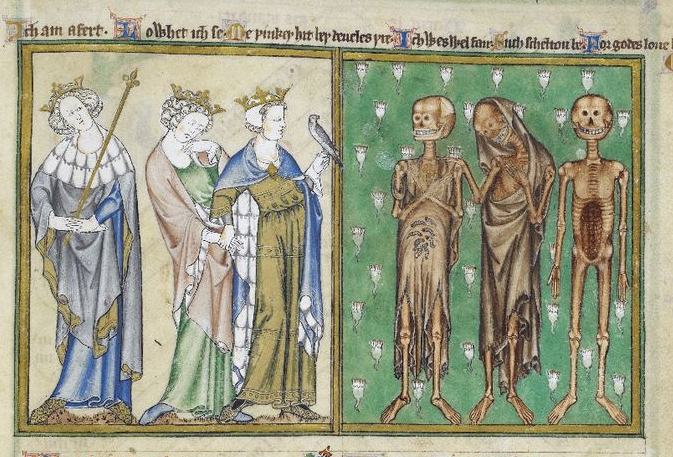 Ich am afert. Lo whet ich se. Me þinkeþ hit beþ deueles þre. Ich wes wel fair. Such scheltou be. For godes loue